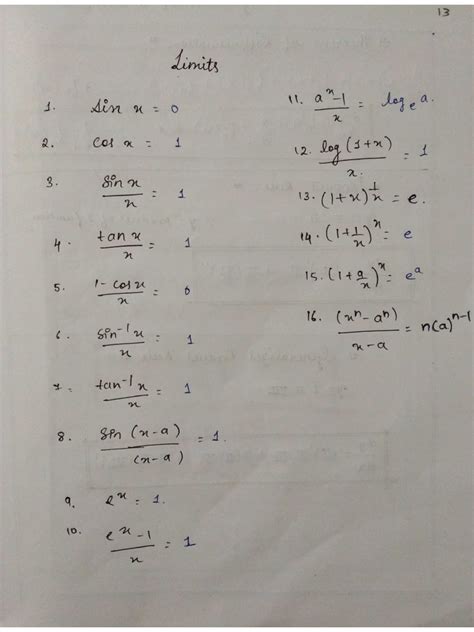 13
Limits
1. Sin x = 0
2. cos x = 1
3. Sin x / x = 1
4. tan x / x = 1
5. 1 - cos x / x = 0
6. Sin⁻¹ x / x = 1
7. tan⁻¹ x / x = 1
8. Sin (x-a) / (x-a) = 1.
9. eˣ = 1.
10. eˣ - 1 / x = 1
11. aˣ-1 / x = logₑ a.
12. log (1+x) / x. = 1
13. (1+x)^1/x = e.
14. (1+1/x)ˣ = e
15. (1+a/x)ˣ = eᵃ
16. (xⁿ-aⁿ) / x-a = n(a)ⁿ⁻¹